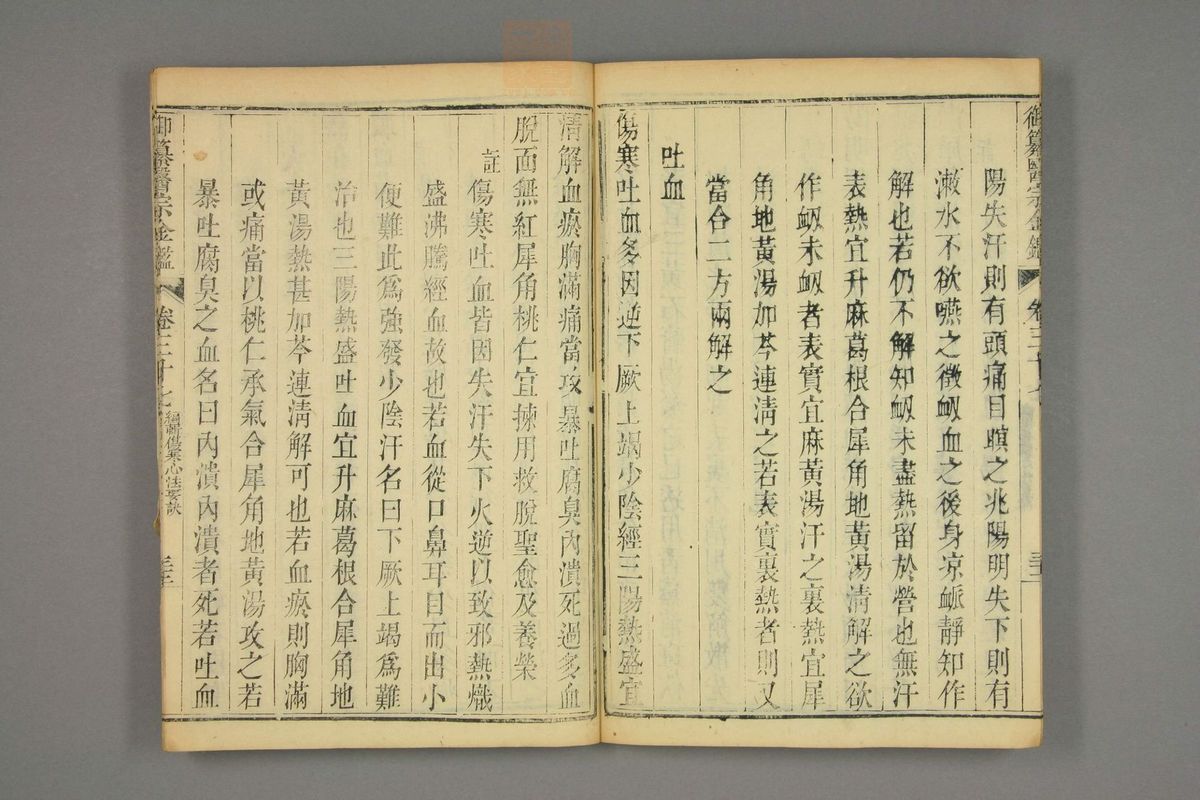 御纂醫宗金鑑
卷三十七
陽失汗則有頭痛目瞑之兆陽明失下則有
漱水不欲嚥之徵衂血之後身凉脈靜知作
解也若仍不解知衂未盡熱留於營也無汗
表熱宜升麻葛根合犀角地黃湯清解之欲
作衂未衂者表實宜麻黃湯汗之裏熱宜犀
角地黃湯加芩連淸之若表實裏熱者則又
當合二方兩解之
吐血
傷寒吐血多因逆下厥上竭少陰經三陽熱盛宜
清解血瘀胸滿痛當攻暴吐腐臭內潰死過多血
脫面無紅犀角桃仁宜揀用救脫聖愈及養榮
註
傷寒吐血皆因失汗失下火逆以致邪熱熾
盛沸騰經血故也若血從口鼻耳目而出小
便難此爲強發少陰汗名曰下厥上竭爲難
治也三陽熱盛吐血宜升麻葛根合犀角地
黃湯熱甚加芩連淸解可也若血瘀則胸滿
或痛當以桃仁承氣合犀角地黃湯攻之若
暴吐腐臭之血名曰內潰內潰者死若吐血
御纂醫宗金鑑
卷三十七
編輯傷寒心法要訣